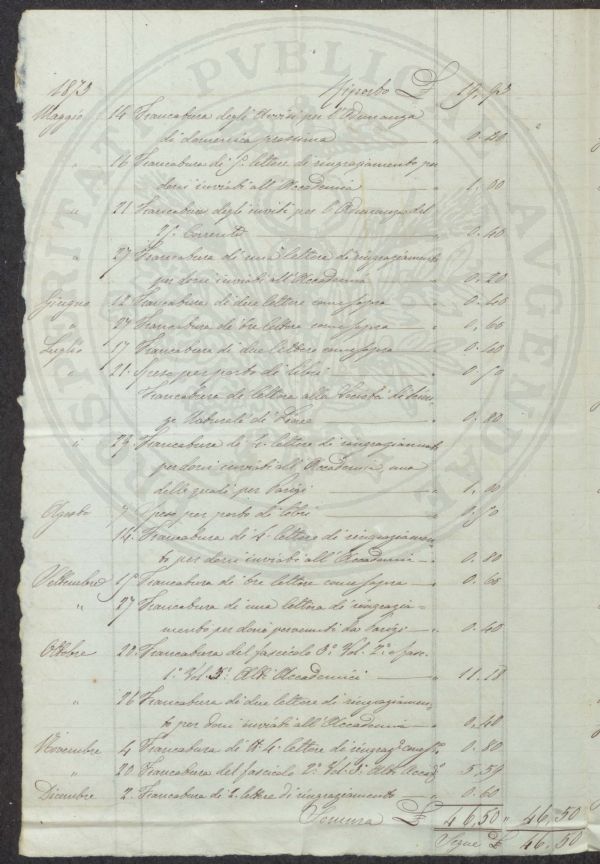 1873 Riporto £ 19.93
Maggio 14 Francatura degli Avvisi per l'Adunanza
di domenica prossima — " 0.20
" 16 Francatura di 5 lettere di ringraziamento per
doni inviati all'Accademia — " 1.00
" 21 Francatura degli inviti per l'Adunanza del
25 Corrente — " 0.40
" 27 Francatura di una lettera di ringraziamento
per doni inviati all'Accademia — " 0.20
Giugno 12 Francatura di due lettere come sopra — " 0.40
" 27 Francatura di tre lettere come sopra — " 0.60
Luglio 17 Francatura di due lettere come sopra — " 0.40
" 21 Spesa per porto di libri — " 0.50
Francatura di lettera alla Società di Scien-
ze Naturali di — " 0.80
" 23 Francatura di 4 lettere di ringraziamento
per doni inviati all'Accademia, una
delle quali per Parigi — " 1.00
Agosto 7 Spesa per porto di libri — " 0.50
14 Francatura di 4 lettere di ringraziamen-
to per doni inviati all'Accademia — " 0.80
Settembre 15 Francatura di tre lettere come sopra — " 0.60
" 27 Francatura di una lettera di ringrazia-
mento per doni pervenuti da Parigi — " 0.40
Ottobre 20 Francatura del fascicolo 3° Vol. 2° e fasc.
1° Vol. 3° Atti Accademici — " 11.18
" 26 Francatura di due lettere di ringraziamen-
to per doni inviati all'Accademia — " 0.40
Novembre 4 Francatura di N° 4 lettere di ringraz° — " 0.80
" 20 Francatura del fascicolo 2° Vol. 3° Atti Accad — 5.59
Dicembre 2 Francatura di lettere di ringraziamento — " 0.60
Somma £ 46,50 " 46,50
Segue £ 46.50
PUBLICAE PROSPERITATI AUGENDAE